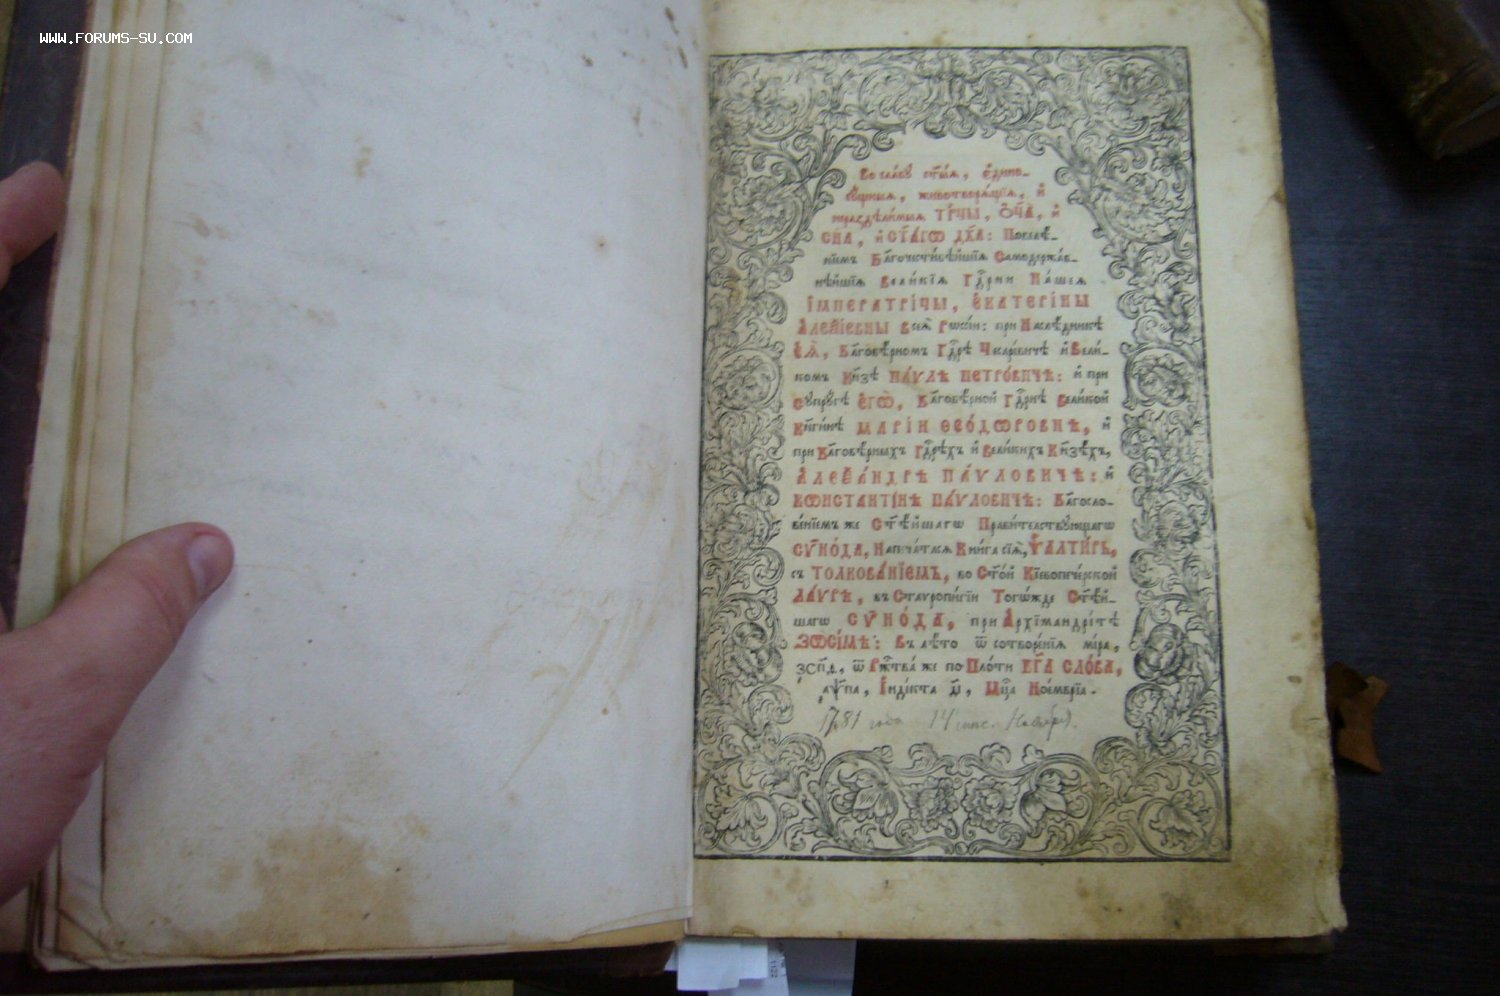 WWW.FORUMS-SU.COM
Во славу ст҃ы́ѧ, є҆дино-
сꙋ́щныѧ, животворѧ́щїѧ, и҆
нераздѣли́мыѧ ТРⷪ҇ЦЫ, Ѻ҆Ц҃А̀, и҆
СН҃А, и҆ СТ҃А́ГѠ ДХ҃А: Повелѣ́-
нїемъ Бл҃гочести́вѣйшїѧ Самодержа́в-
нѣйшїѧ Вели́кїѧ Гдⷭ҇рни На́шеѧ
І҆МПЕРАТРІ́ЦЫ, Є҆КАТЕРІ́НЫ
А҆ЛЕѮІ́ЕВНЫ всеѧ̀ Рѡссі́и: при Наслѣ́дникѣ
Є҆Ѧ̀, Бл҃говѣ́рномъ Гдⷭ҇рѣ Цесаре́вичѣ и҆ Вели́-
комъ Кн҃зѣ ПА́ѴЛѢ ПЕТРО́ВИЧѢ: и҆ при
Сꙋпрꙋ́гѣ Є҆ГѠ̀, Бл҃говѣ́рной Гдⷭ҇рнѣ Вели́кой
Кн҃ги́нѣ МАРІ́И ѲЕО́ДѠРОВНѢ, и҆
при Бл҃говѣ́рныхъ Гдⷭ҇рѣхъ и҆ Вели́кихъ Кн҃зѣ́хъ,
А҆ЛЕѮА́НДРѢ ПА́ѴЛОВИЧѢ: и҆
КѠНСТАНТІ́НѢ ПА́ѴЛОВИЧѢ: Бл҃госло-
ве́нїемъ же Ст҃ѣ́йшагѡ Прави́телствꙋющагѡ
СѴНО́ДА, Напеча́тасѧ Кни́га сїѧ̀, ѰАЛТИ́РЬ,
съ ТОЛКОВА́НЇЕМЪ, во Ст҃о́й Кїевопече́рской
ЛА́ѴРѢ, въ Стаѵропи́гїи Тогѡ́жде Ст҃ѣ́й-
шагѡ СѴНО́ДА, при А҆рхїмандрі́тѣ
ЗѠСІ́МѢ: Въ лѣ́то ѿ сотворе́нїѧ мі́ра,
҂зсп҃д, ѿ Рж҇тва́ же по Пло́ти БГ҃А СЛО́ВА,
҂аѱ҃па, І҆ндї́кта д҃і, Мц҇а Ное́мврїа.
1781 года 14 инс. Ноября.